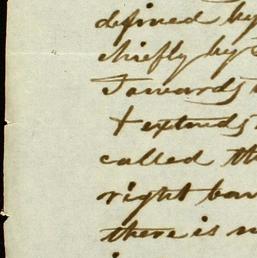 defined by
chiefly by
Towards
+ extends
called th
right ban
there is n